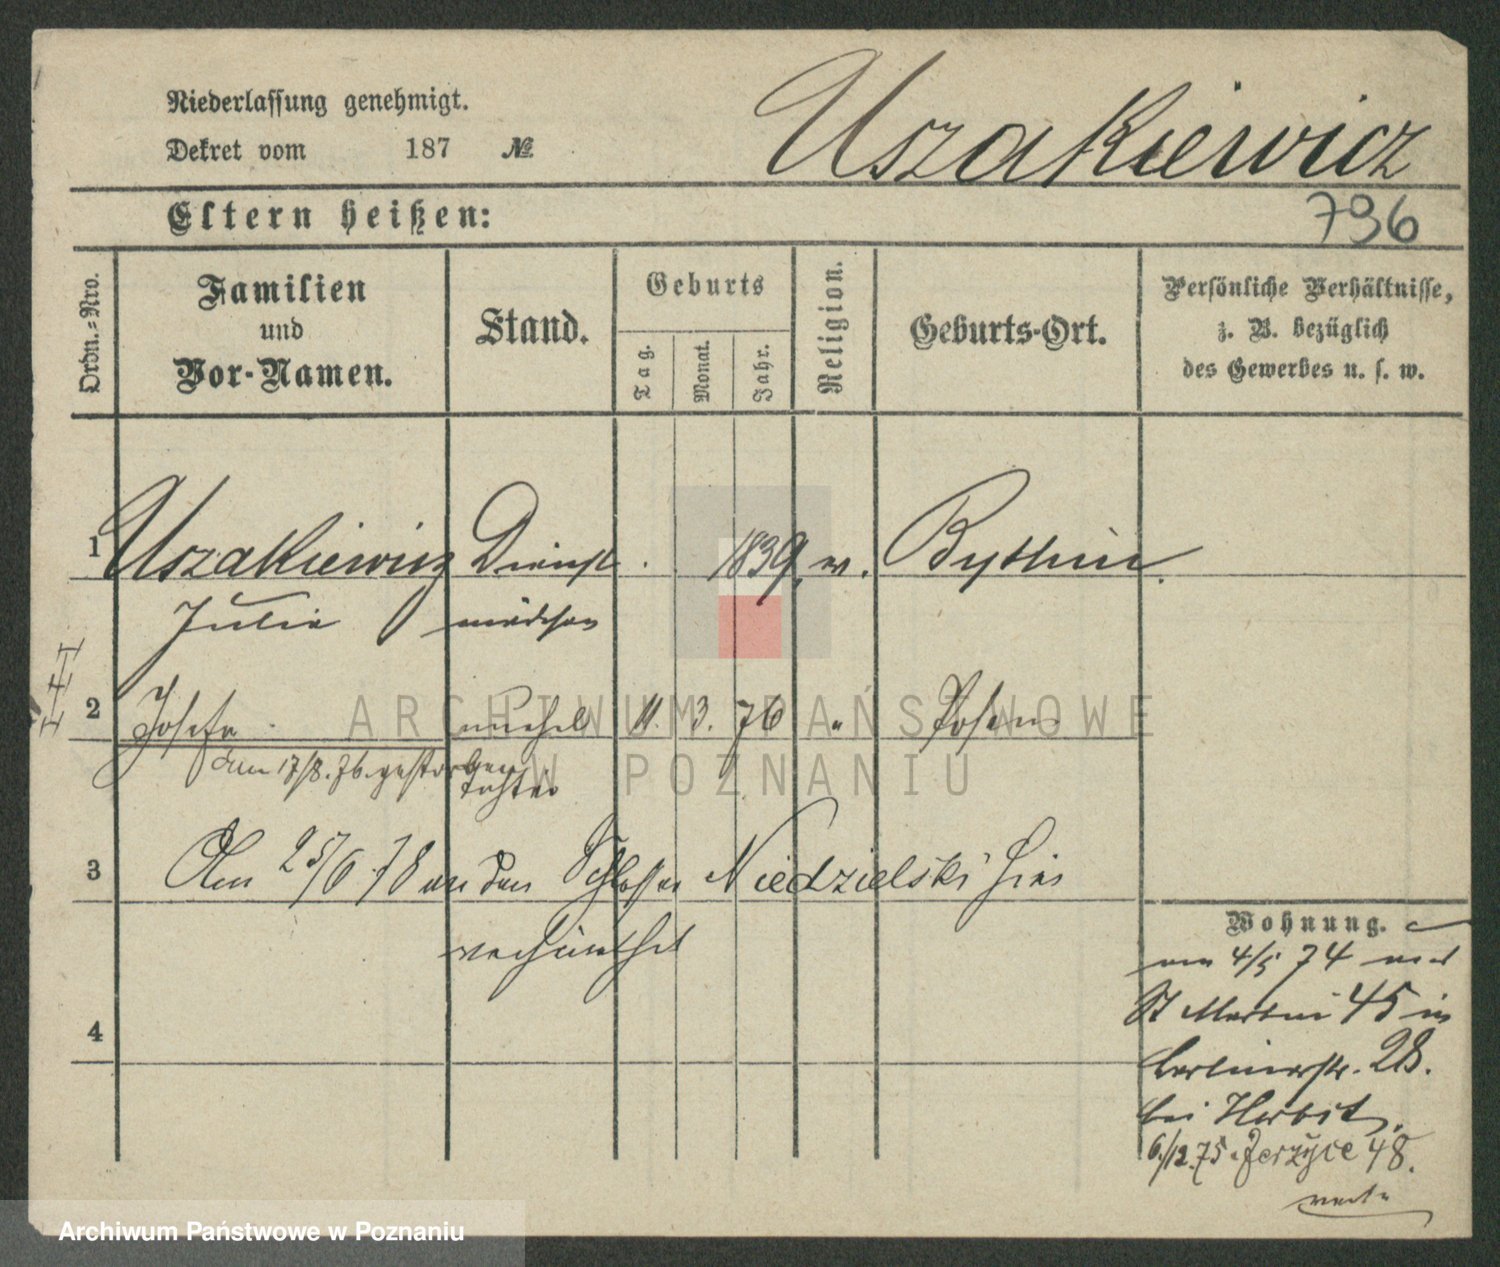 Niederlassung genehmigt.
Dekret vom 187 №
Uszakiewicz
Eltern heißen:
796
Ordn.=Nro.
Familien und Vor-Namen.
Stand.
Geburts
Tag.
Monat.
Jahr.
Religion.
Geburts-Ort.
Persönliche Verhältnisse,
z. B. bezüglich
des Gewerbes u. s. w.
1 Uszakiewicz Dienst 1839. Bythin
Julie mädchen
III
2 Josefa unehel 11 3. 76 " Posen
am 17/8. 76. gestorben
Tochter
3 Am 25/6 78 an den Schlosser Niedzielski hier
verheirathet
4
Wohnung.
4/5 74
St Martin 45 in
Berlinerstr. 28.
bei Herbst.
6/12 75. Jerzyce 48.
ARCHIWUM PAŃSTWOWE
W POZNANIU
Archiwum Państwowe w Poznaniu